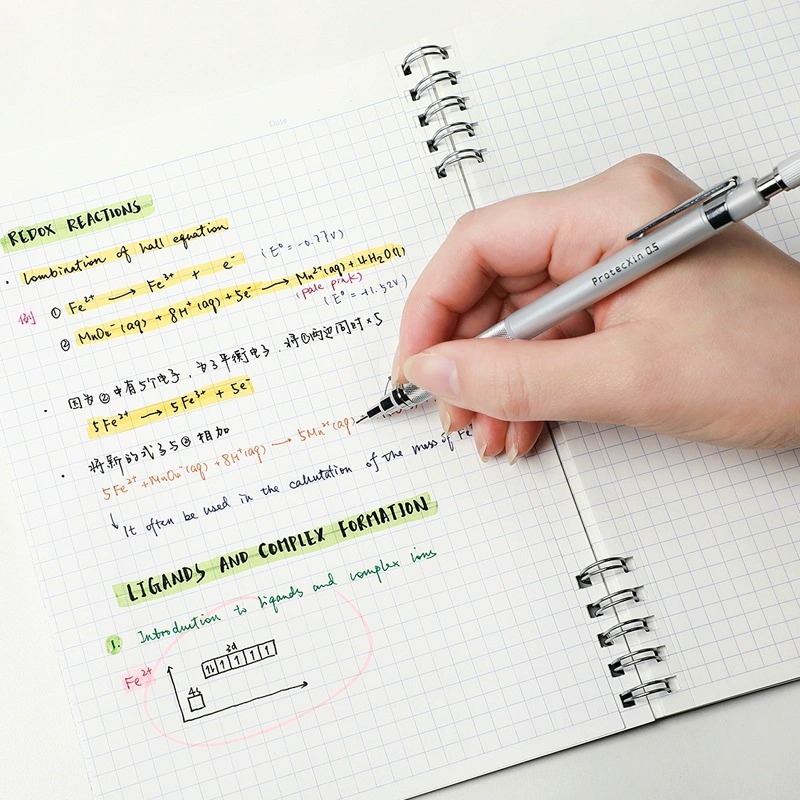 Date
REDOX REACTIONS
· Combination of half equation
例 ① Fe²⁺ → Fe³⁺ + e⁻ (E° = -0.77V)
② MnO₄⁻(aq) + 8H⁺(aq) + 5e⁻ → Mn²⁺(aq) + 4H₂O(l)
(pale pink)
(E° = +1.52V)
· 因为②中有5个电子,为了平衡电子,将①两边同时×5
5Fe²⁺ → 5Fe³⁺ + 5e⁻
· 将新的式子与②相加
5Fe²⁺ + MnO₄⁻(aq) + 8H⁺(aq) → 5Mn²⁺(aq)
↳ It often be used in the calculation of the mass of Fe
LIGANDS AND COMPLEX FORMATION
1. Introduction to ligands and complex ions
Fe²⁺
3d
4s
ProtecXin 0.5